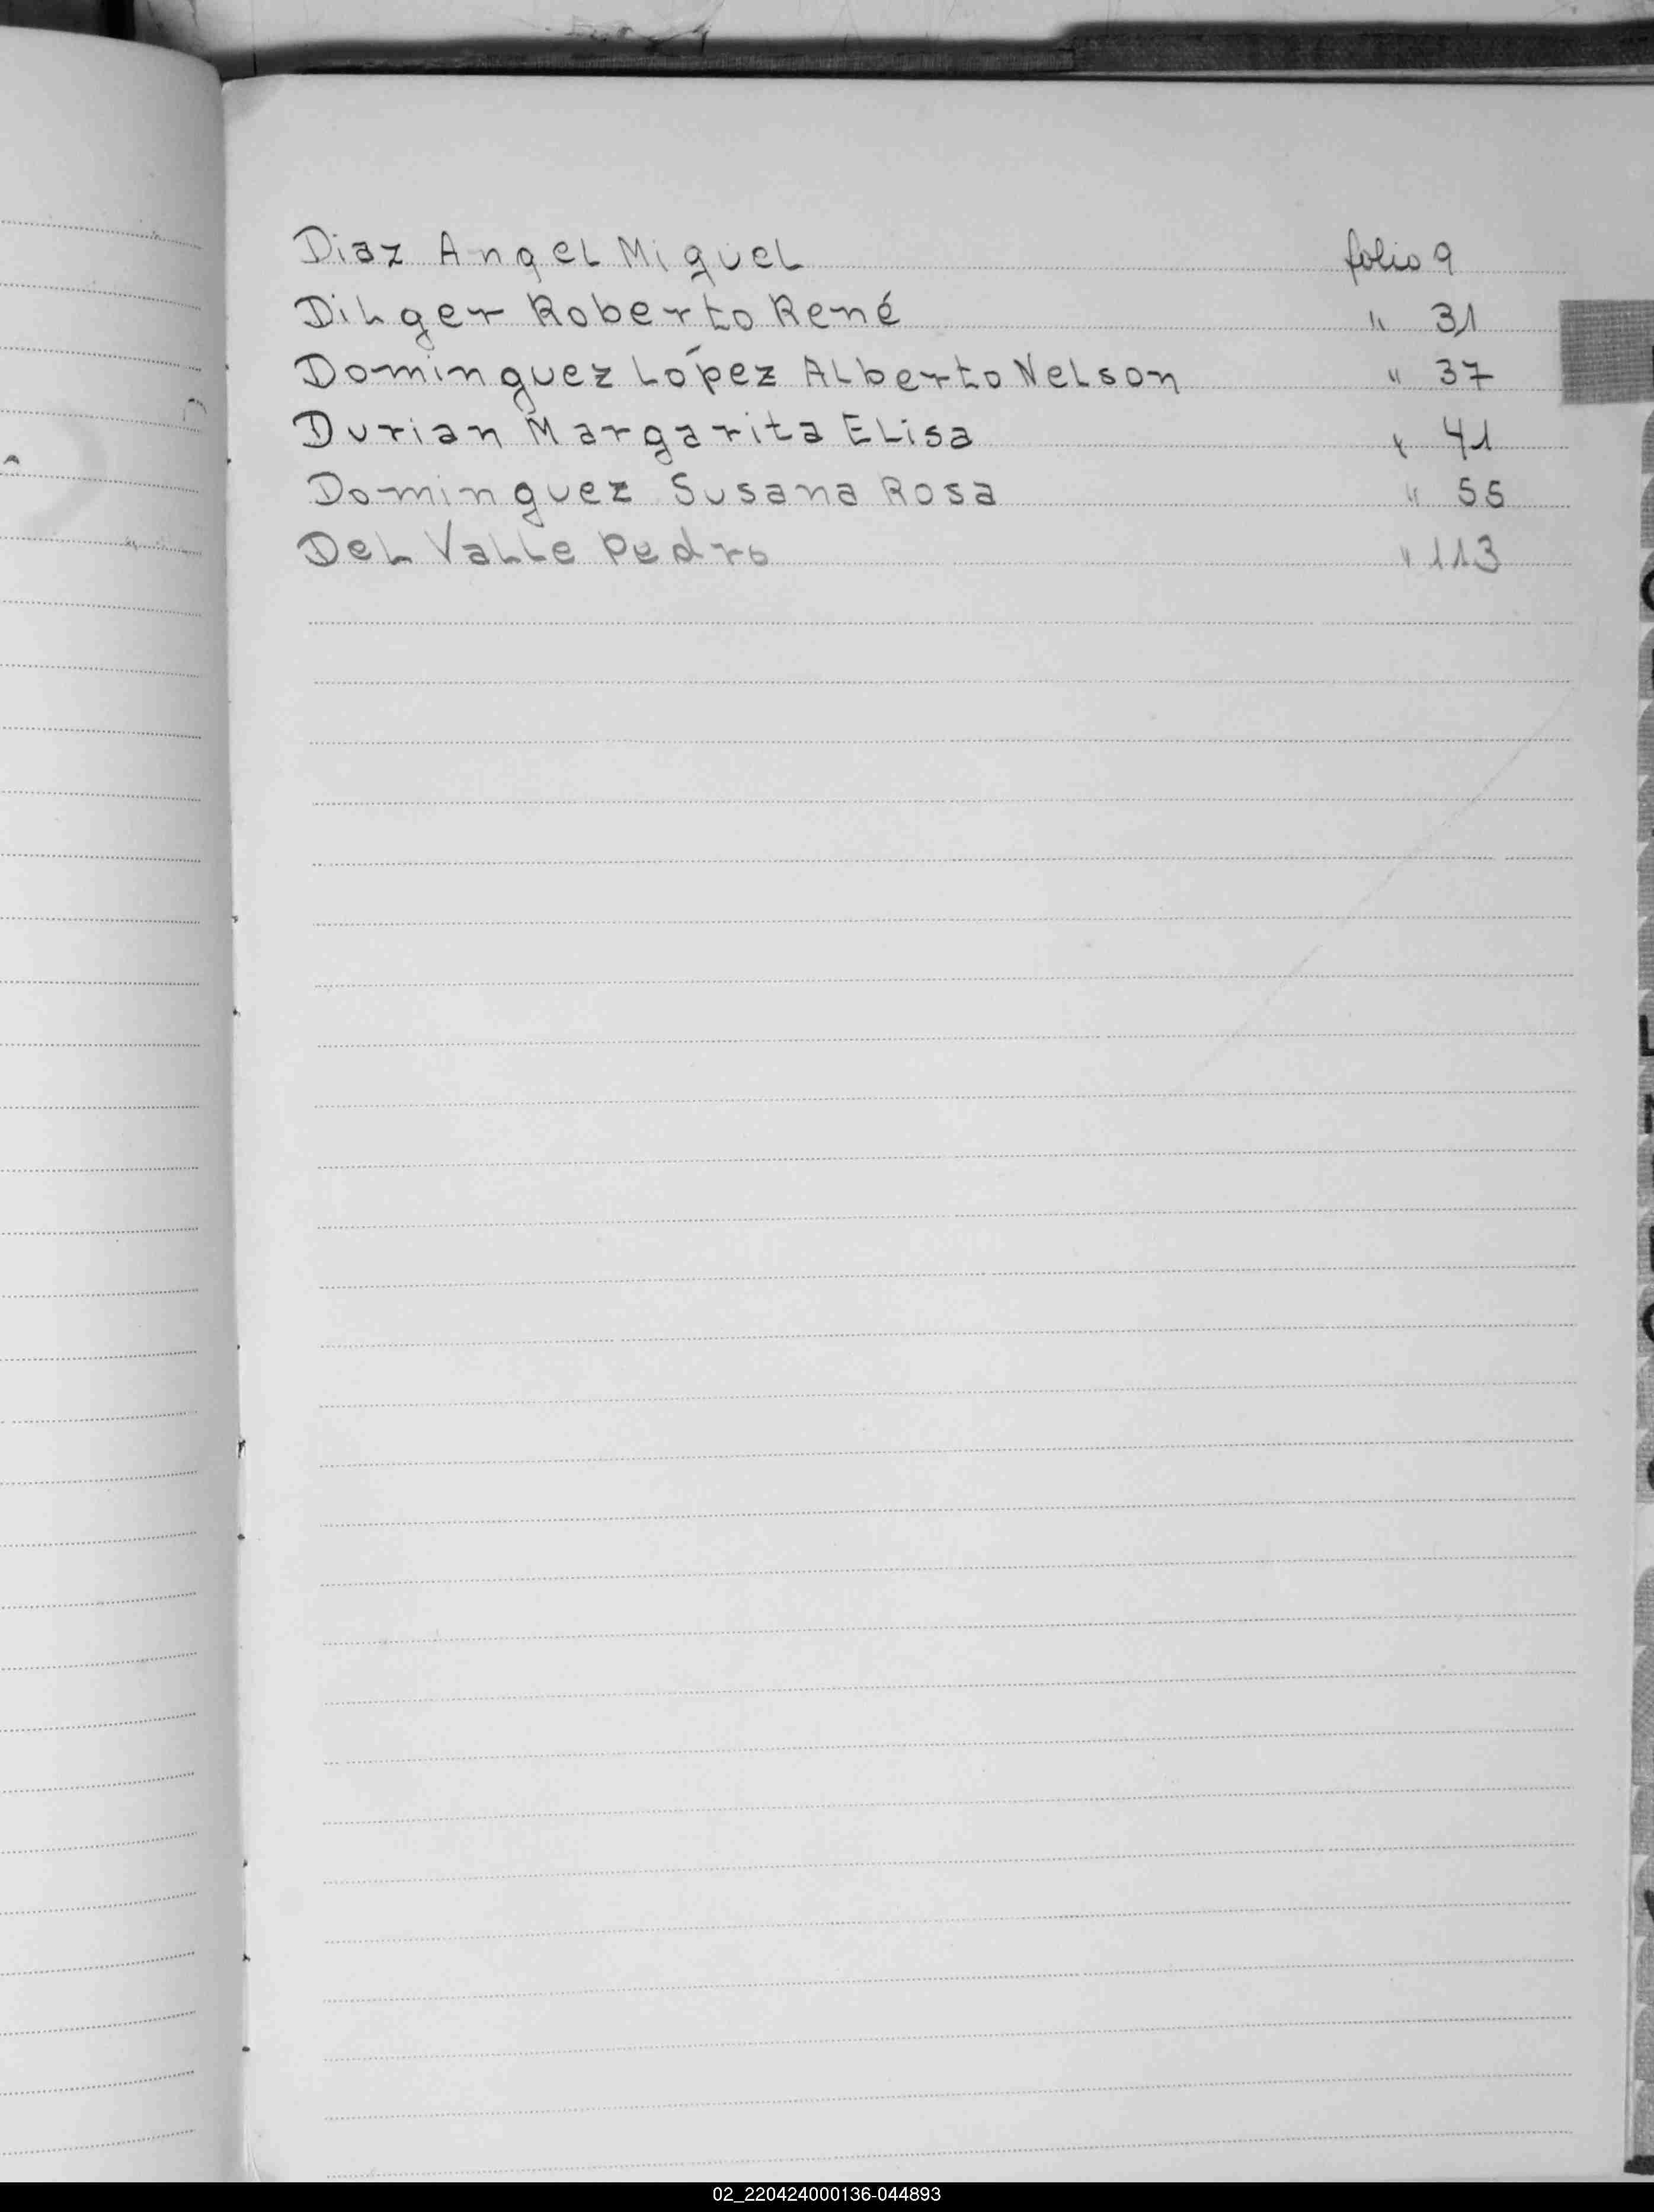 Diaz Angel Miguel folio 9
Dilger Roberto René " 31
Dominguez López Alberto Nelson " 37
Durian Margarita Elisa " 41
Dominguez Susana Rosa " 55
Del Valle Pedro " 113
02_220424000136-044893